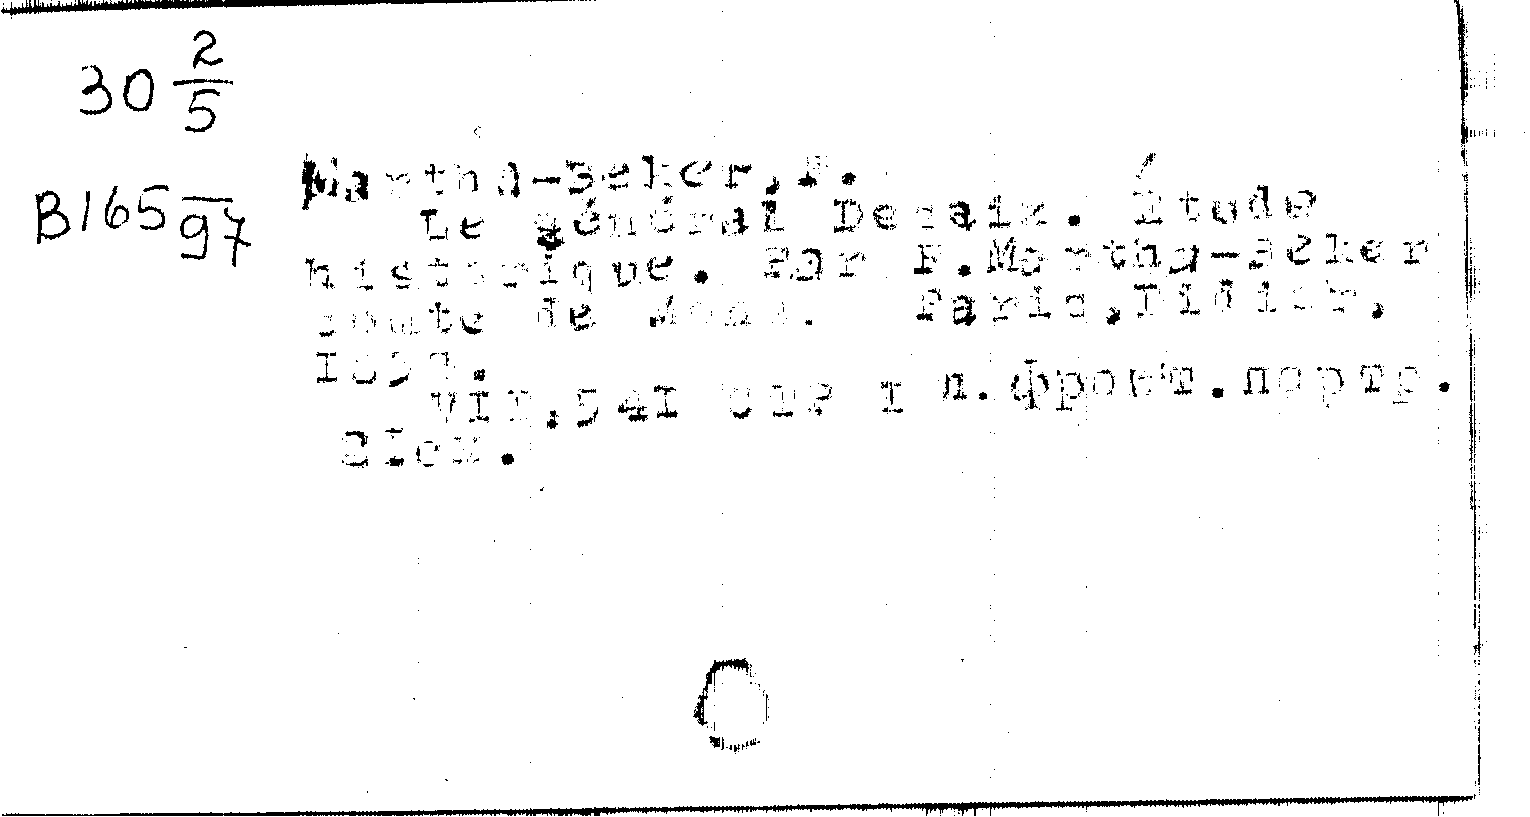 30 2/5
B165 97
Martha-Beker, F.
Le général Desaix. Étude
historique. Par F. Martha-Beker
comte de Mons. Paris, Didier,
VII, 541 стр I л. фронт. портр.